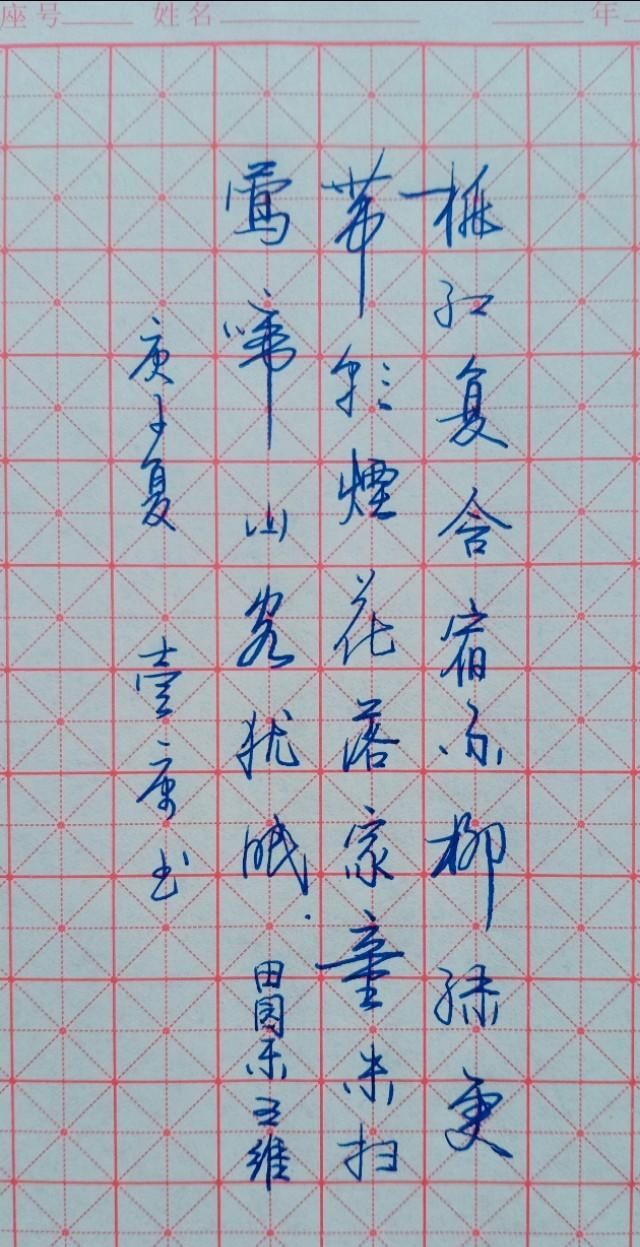 座号 姓名 年
桃红复含宿雨柳绿更
带朝煙花落家童未扫
莺啼山客犹眠.田园乐王维
庚子夏 壹 书